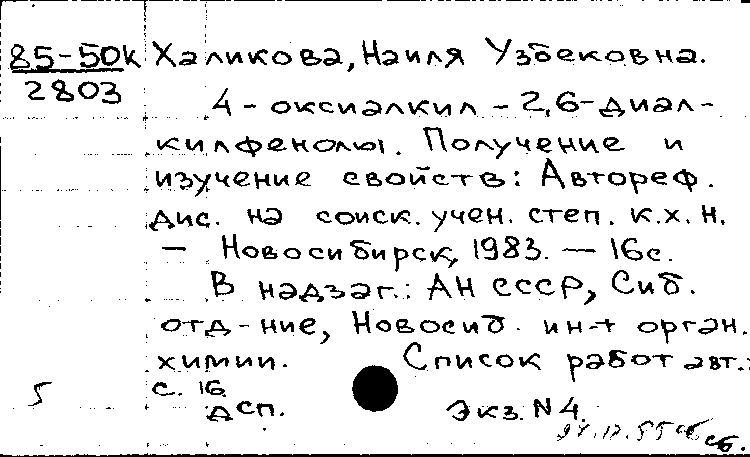 85-50к Халикова, Наиля Узбековна.
2803
4-оксиалкил-2,6-диал-
килфенолы. Получение и
изучение свойств: Автореф.
дис. на соиск. учен. степ. к.х.н.
— Новосибирск, 1983. — 16с.
В надзаг.: АН СССР, Сиб.
отд-ние, Новосиб. ин-т орган.
химии. Список работ авт.:
с. 16
5 дсп. Экз. N4.
сб.